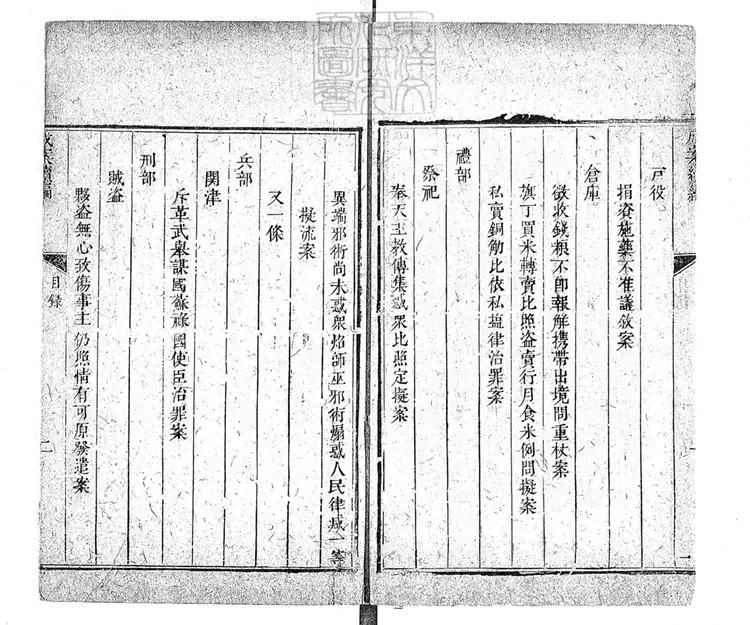 東洋文
化研究
所圖書
成案續編
一
戸役
捐資施藥不准議敘案
倉庫
徵收錢粮不卽報解携帶出境問重杖案
旗丁買米轉賣比照盗賣行月食米例問擬案
私賣銅觔比依私塩律治罪案
禮部
祭祀
奉天主教傳集惑衆比照定擬案
異端邪術尚未惑衆焰師巫邪術煽惑人民律减一等
擬流案
又一條
兵部
関津
斥革武舉謀國蘇祿國使臣治罪案
刑部
賊盗
夥盗無心致傷事主仍照情有可原發遣案
成案續編 目録 二